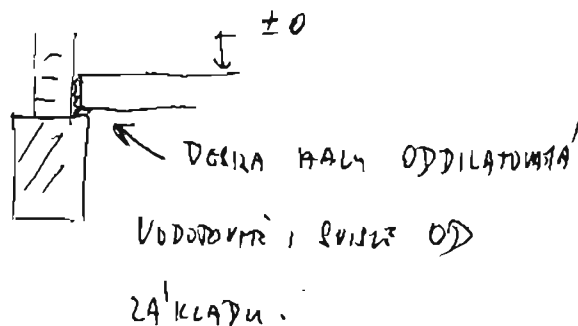 ±0
DESKA HALY ODDILATOVANÁ
VODOROVNĚ I SVISLE OD
ZÁKLADU.